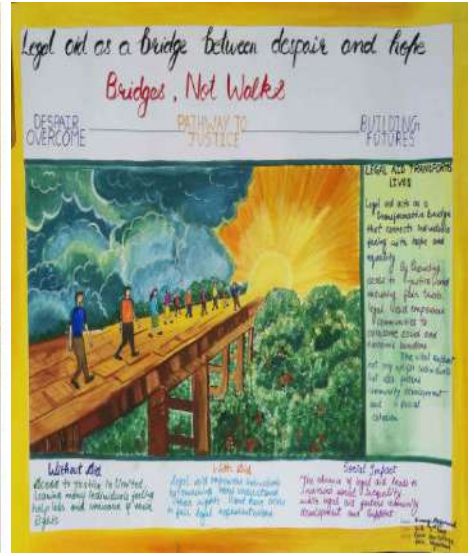 Legal aid as a bridge between despair and hope
Bridges, Not Walks
DESPAIR
OVERCOME
PATHWAY TO
JUSTICE
BUILDING
FUTURES
LEGAL AID TRANSFORMS
LIVES
Legal aid acts as a
transformative bridge
that connects individuals
facing with hope and
equality
By
access to justice and
ensuring fair
legal empowers
communities to
overcome
The vital support
not only individuals
but also
community development
and social
cohesion
Without Aid
Access to justice is limited,
leaving many individuals feeling
helpless and unaware of their
rights
With Aid
Legal aid empowers individuals
by them understand
their rights have access
a fair legal representation
Social Impact
The absence of legal aid leads to
increased social inequality
while legal aid fosters community
development and support